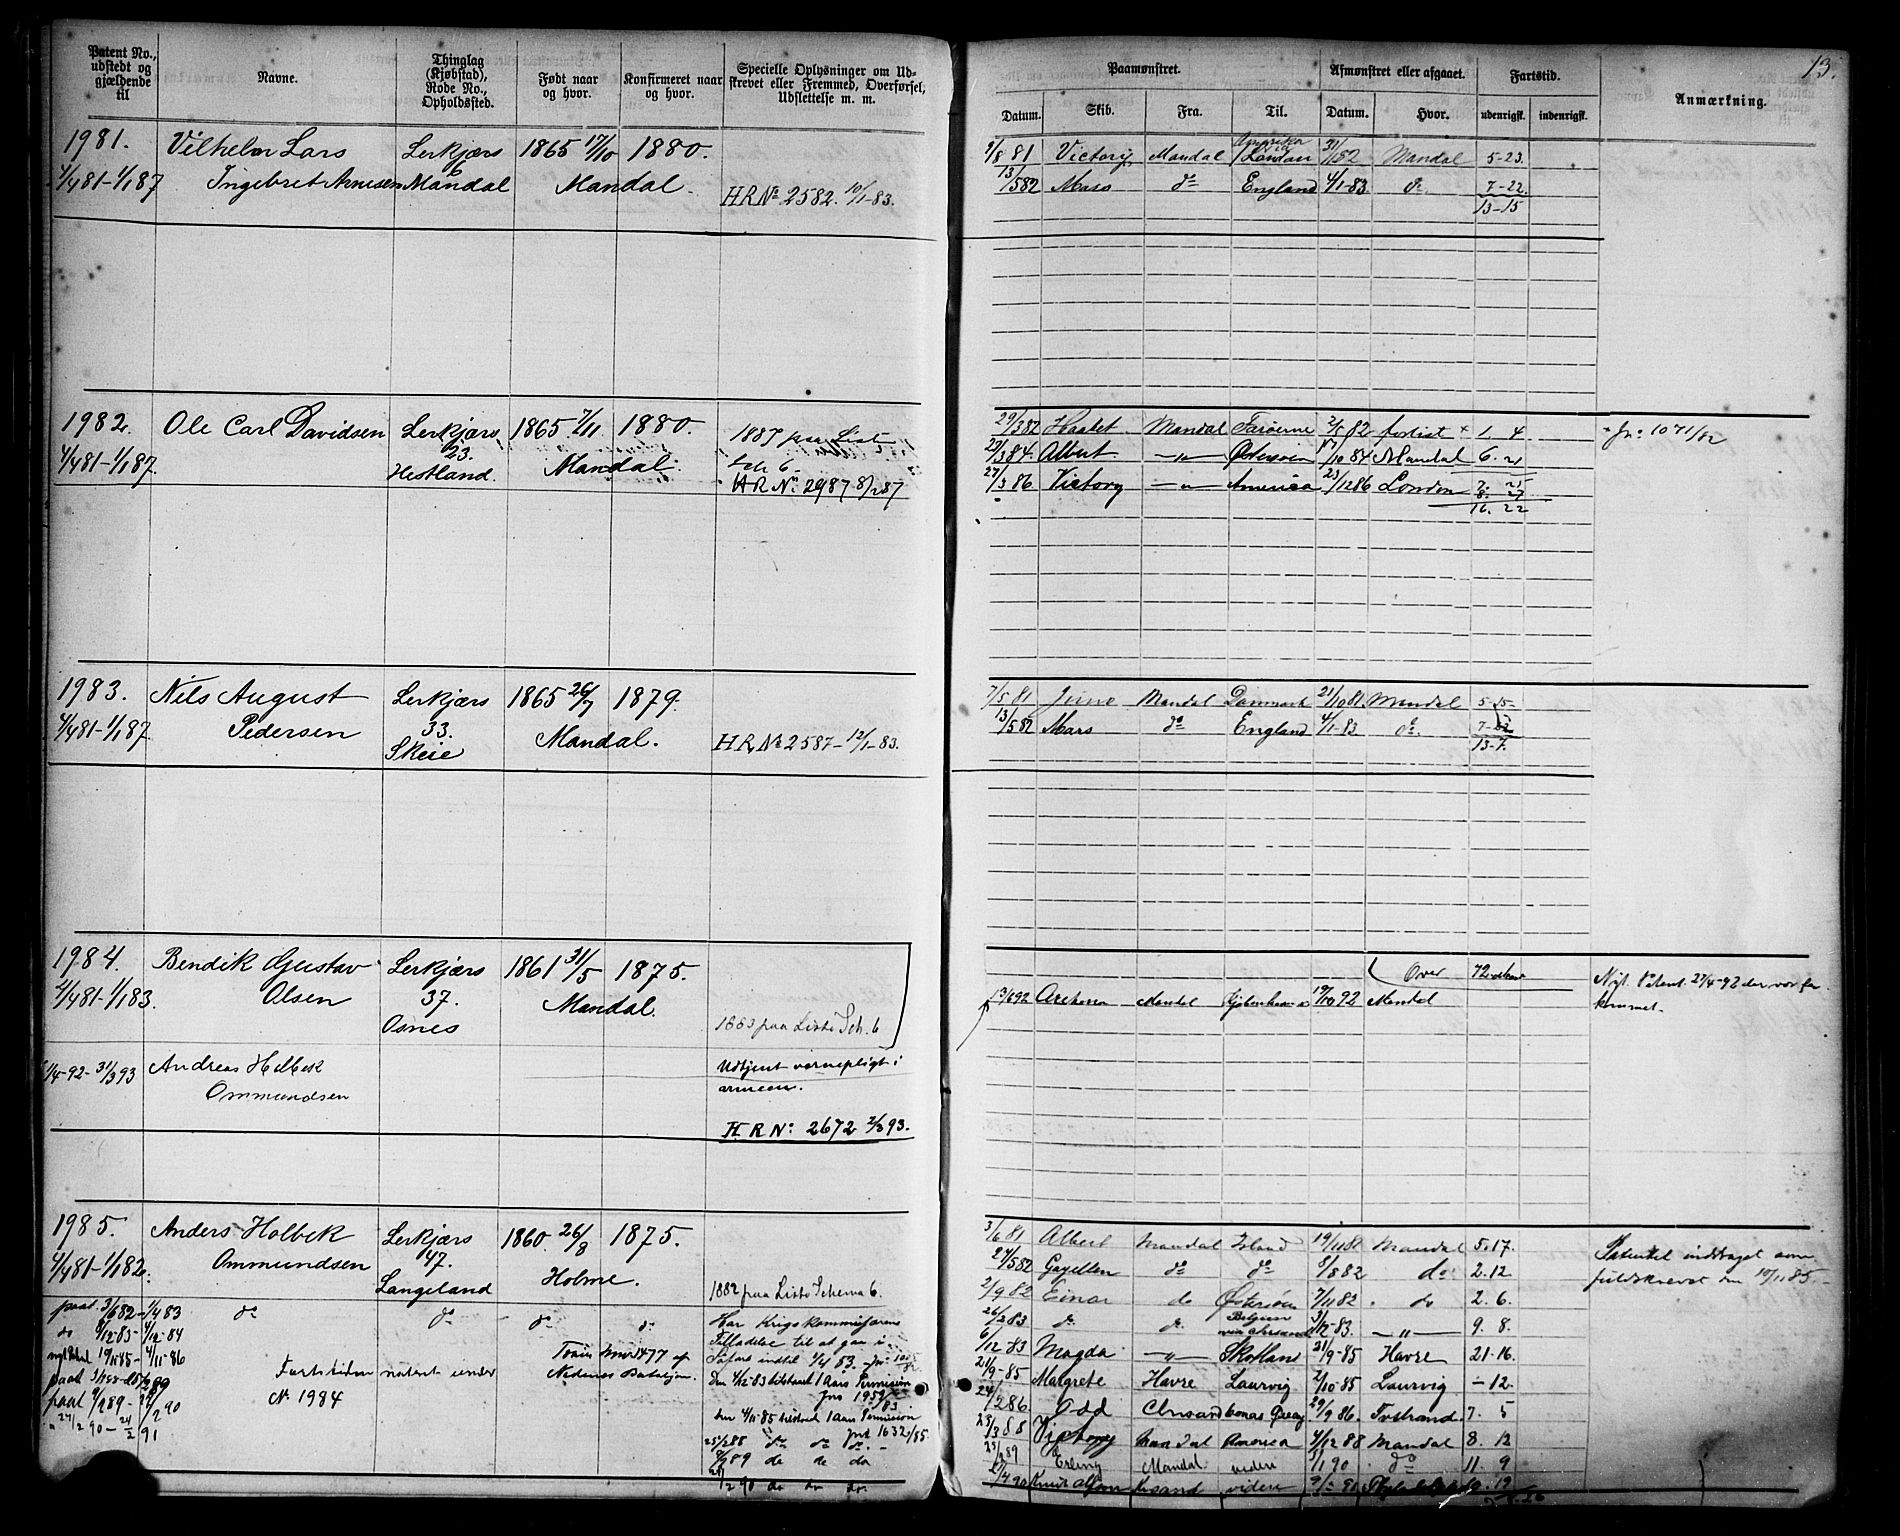 13.
Patent No., udstedt og gjældende til
Navne.
Thinglag (Kjøbstad), Rode No., Opholdssted.
Født naar og hvor.
Konfirmeret naar og hvor.
Specielle Oplysninger om Udskrevet eller Fremmed, Overførsel, Udslettelse m. m.
Paamønstret.
Afmønstret eller afgaaet.
Fartstid.
Anmærkning.
Datum. Skib. Fra. Til. Datum. Hvor. udenrigsk. indenrigsk.
1981. Vilhelm Lars Lerkjærs 1865 17/10 1880.
4/4 81-1/1 87 Ingebret Arnesen Mandal Mandal. HR No 2582. 10/1-83.
9/8 81 Victory Mandal London 31/1 52 Mandal 5-23.
13/5 82 Mars do England 4/1-83. do 7-22.
13-15
1982. Ole Carl Davidsen Lerkjærs 1865. 7/11 1880. 1887 paa Liste
23. Sch 6.
4/4 81-1/1 87. Hestland. Mandal. HR No 2987 8/2 87
29/3 82 Mandal Færøerne 2/5 82 forlist + 1. 4 + Jn: 1071/82
23/3 84 Albert -"- Østersøen 17/10 84 Mandal 6. 21
27/3 86 Victory -"- America 23/12 86 London
16. 22
1983. Nils August Lerkjærs 1865 26/7 1879.
4/4 81-1/1 87. Pedersen 33. Mandal. HR No 2587-12/1-83.
Skeie
7/5 81 Juno Mandal Danmark 21/10 81 Mandal
13/5 82 Mars do England 4/1-83 do.
13-7.
1984. Bendik Gustav Lerkjærs 1861 31/5 1875.
4/4 81-1/1 83. Olsen 37. Mandal.
Osnes 1883 paa Liste Sch. 6
Over 72
13/6 92 Mandal Kjøbenhavn 19/10 92 Mandal
Nyt Patent 27/4-92 da var forkommet.
/4-92-31/3 93 Andreas Holbek Udtjent vernepligt i
Ommundsen armeen.
HR No: 2672 2/3 93.
1985. Anders Holbek Lerkjærs 1860. 26/8 1875.
4/4 81-1/1 82. Ommundsen 47. Holme.
Langeland 1882 paa Liste Schema 6.
paat. 3/6 82-1/4 83 do do do do Har Krigskommisærens
do 4/12-83-4/12-84 Tilladelse til at gaa i
nyt Patent 19/11 85-4/11-86 Søfart indtil 1/4 83.
Fartstiden noteret under No 1984
Nedenes Bataljon. Den 4/12-83 tilstaaet 1 Aars Permission
Jno 1959/83
Den 4/11-85 tilstaaet 1 Aars Permission
Jno 1632/85.
25/2 88 do do do. -
89 do do do
90 do do do.
3/6 81 Albert Mandal Island 19/11 81 Mandal 5. 17.
27/5 82 Gazellen do do 8/8 82 do 2. 12
2/9 82 Einar do Østersøen 7/11 82 do 2. 6.
26/2 83 do. do. Belgien 3/12-83. -"- 9. 8.
6/12-83 Magda -"- Skotland 21/9-85 Havre 21-16.
21/9-85 Malgrete Havre Laurvig 2/10-85 Laurvig -12.
24/2 86 Odd 29/9 86. Tvstrand. 7. 5
23/3 88 Victory Mandal America 4/12 88 Mandal 8. 12
89 Erling Mandal. videre 5/1 90 do 11. 9
/4 90 videre 19
Patentet inddraget som fuldskrevet den 10/11 85.